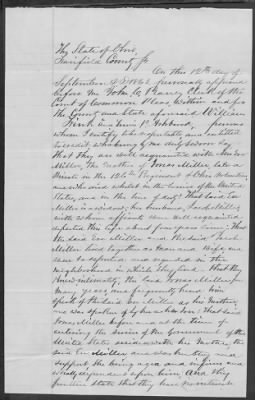 The State of Ohio
Fairfield County Ss
On this 12th day of
September A.D. 1862 personally appeared
before me John C Clerk of the
Court of Common Pleas within and for
the County and State aforesaid William
Fink and persons
whom I certify to be respectable and entitled
to credit who being by me duly sworn say
that they are well acquainted with
Miller, the mother of Jonas Miller late a
Private in the Regiment of Ohio Volunteers
who died whilst in the service of the United
States, and in the line of duty That said
Miller is a widow her husband
with whom affiants were well acquainted
departed this life about four years since That
the said Miller and
Miller lived together as husband and wife and
were so reputed and regarded in the
neighborhood in which they lived That they
knew intimately the said Jonas Miller for
many years, and frequently heard him
speak of the said Miller as his mother,
and was spoken of by her as her son That said
Jonas Miller before and at the time of
entering the service of the Government of the
United States resided with his mother, the
said Miller and was
support she being aged and
wholly dependent upon him And they
further state that they have no interest